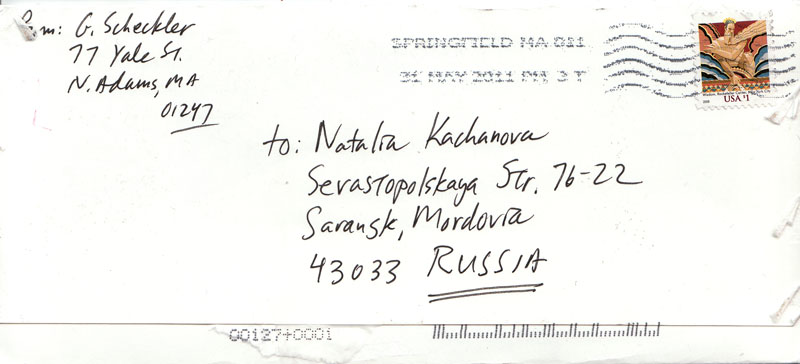 From: G. Scheckler
77 Yale St.
N. Adams, MA
01247
SPRINGFIELD MA 011
31 MAY 2011 PM 3 T
USA $1
to: Natalia Kachanova
Sevastopolskaya Str. 76-22
Saransk, Mordovia
43033 RUSSIA
00127+0001